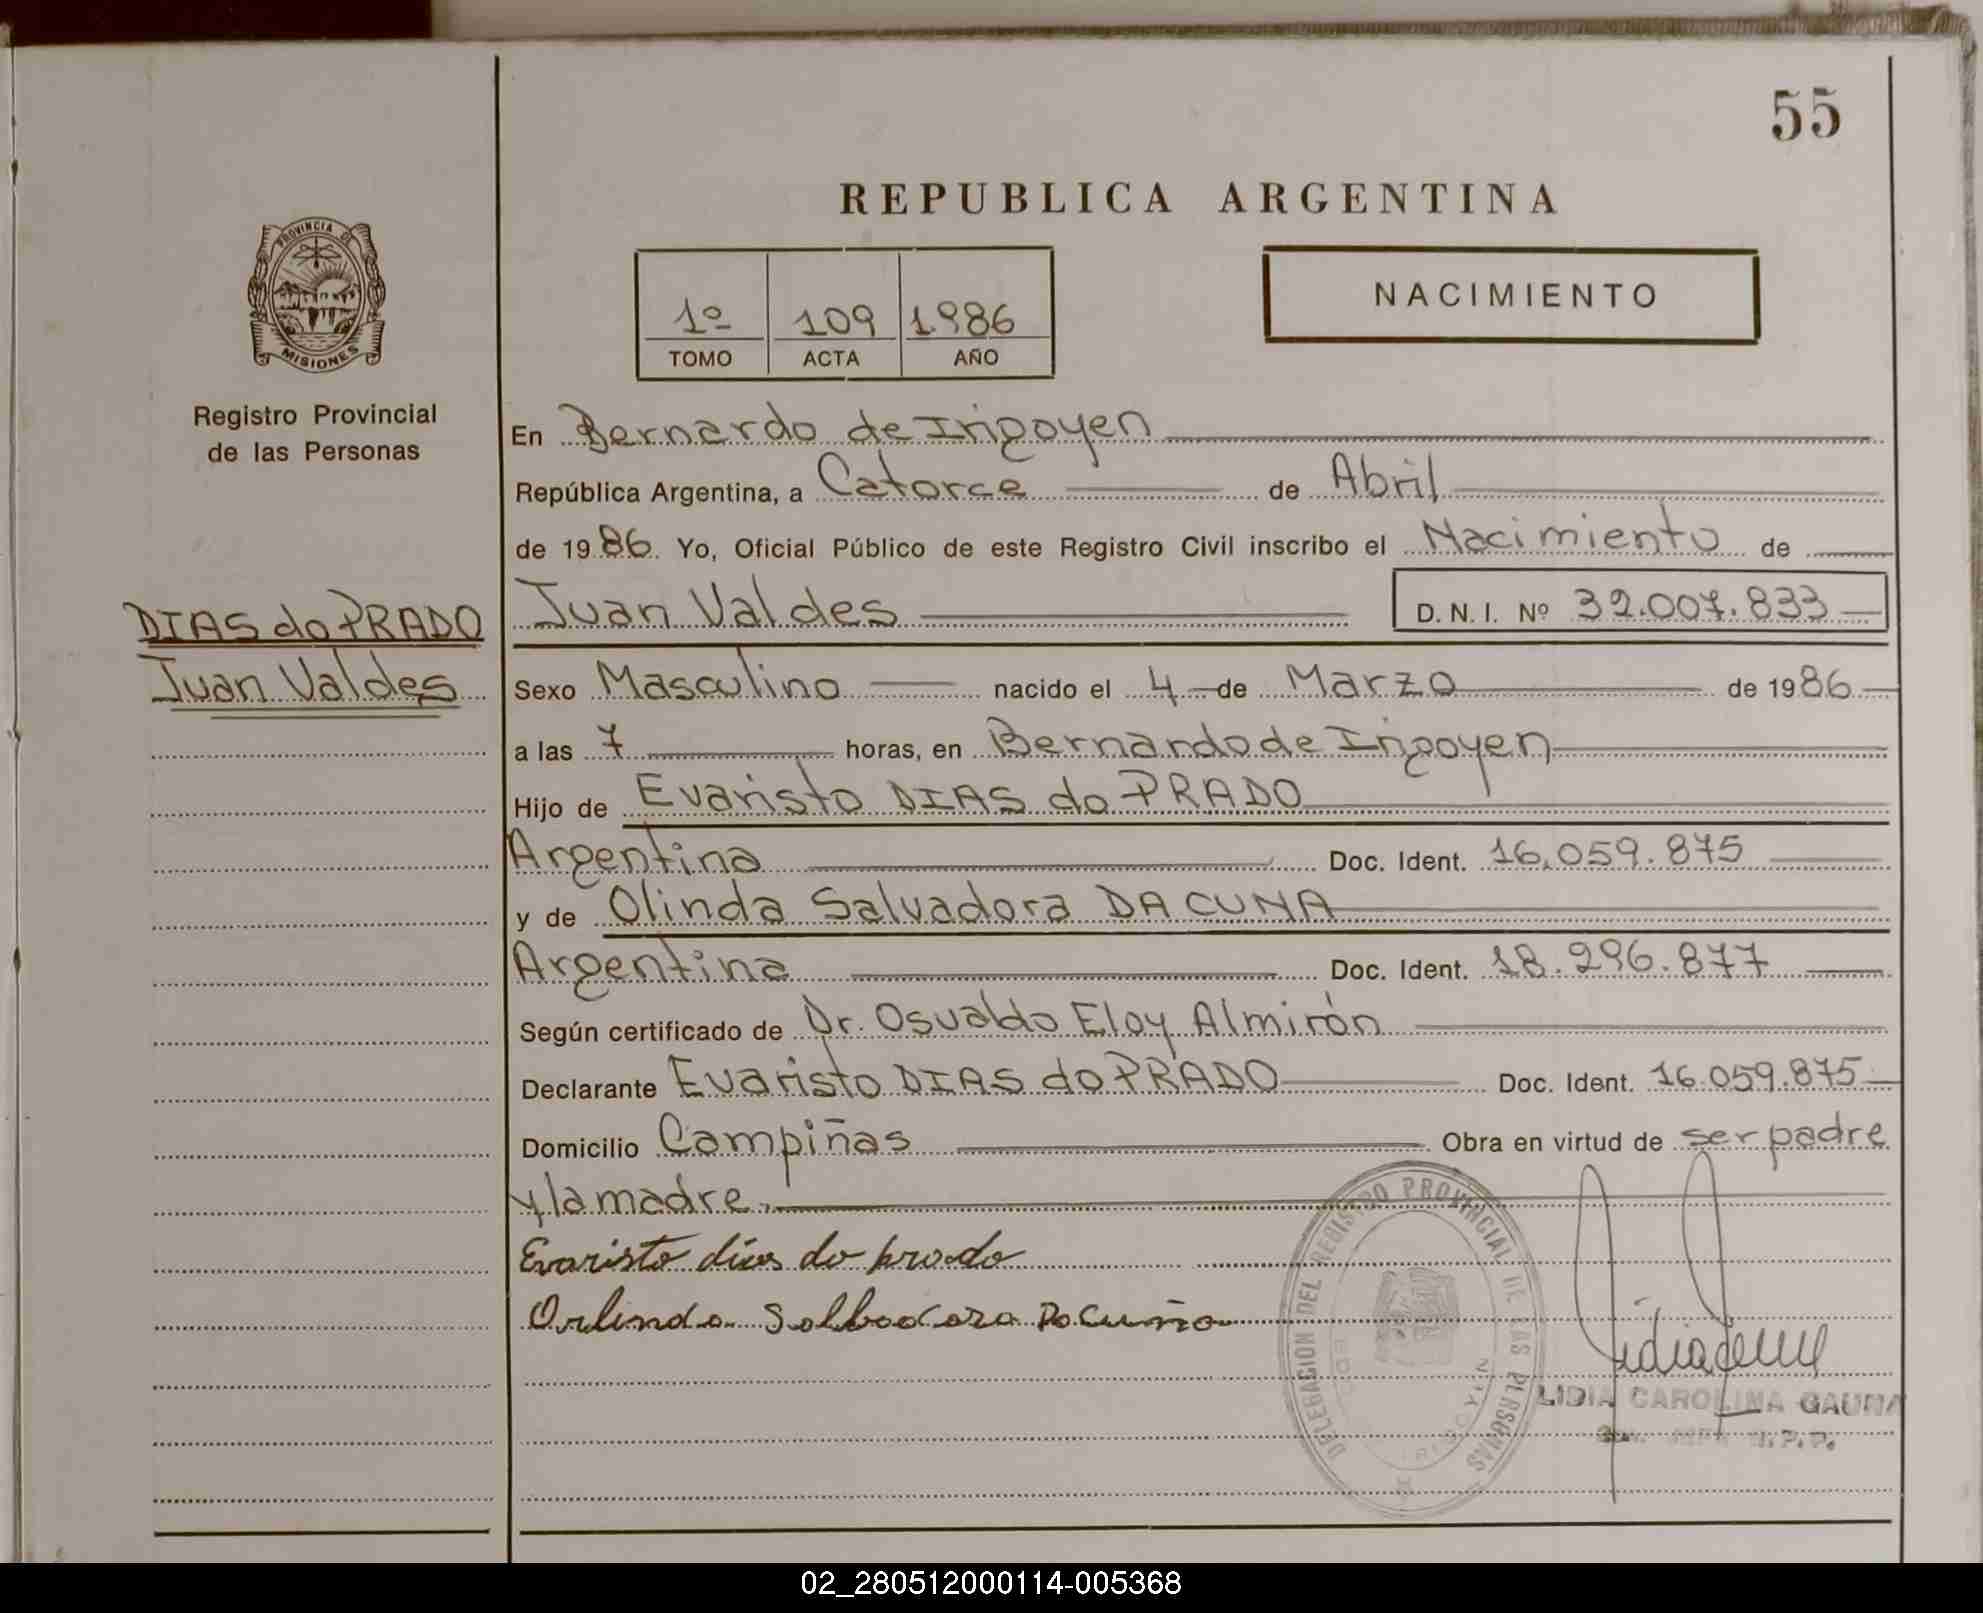 55
REPUBLICA ARGENTINA
PROVINCIA DE
MISIONES
Registro Provincial
de las Personas
1º 109 1986
TOMO ACTA AÑO
NACIMIENTO
En Bernardo de Irigoyen
República Argentina, a Catorce de Abril
de 1986. Yo, Oficial Público de este Registro Civil inscribo el Nacimiento de
DIAS do PRADO
Juan Valdes
Juan Valdes D. N. I. Nº 32.007.833
Sexo Masculino nacido el 4 de Marzo de 1986
a las 7 horas, en Bernardo de Irigoyen
Hijo de Evaristo DIAS do PRADO
Argentina Doc. Ident. 16.059.875
y de Olinda Salvadora DA CUNA
Argentina Doc. Ident. 18.296.877
Según certificado de Dr. Osvaldo Eloy Almirón
Declarante Evaristo DIAS do PRADO Doc. Ident. 16.059.875
Domicilio Campiñas Obra en virtud de ser padre
y la madre.
Evaristo dias do prado
Orlinda Salbadora Da Cuña
DELEGACION DEL REGISTRO PROVINCIAL DE LAS PERSONAS
IRIGOYEN
LIDIA CAROLINA GAUNA
R.P.P.
02_280512000114-005368